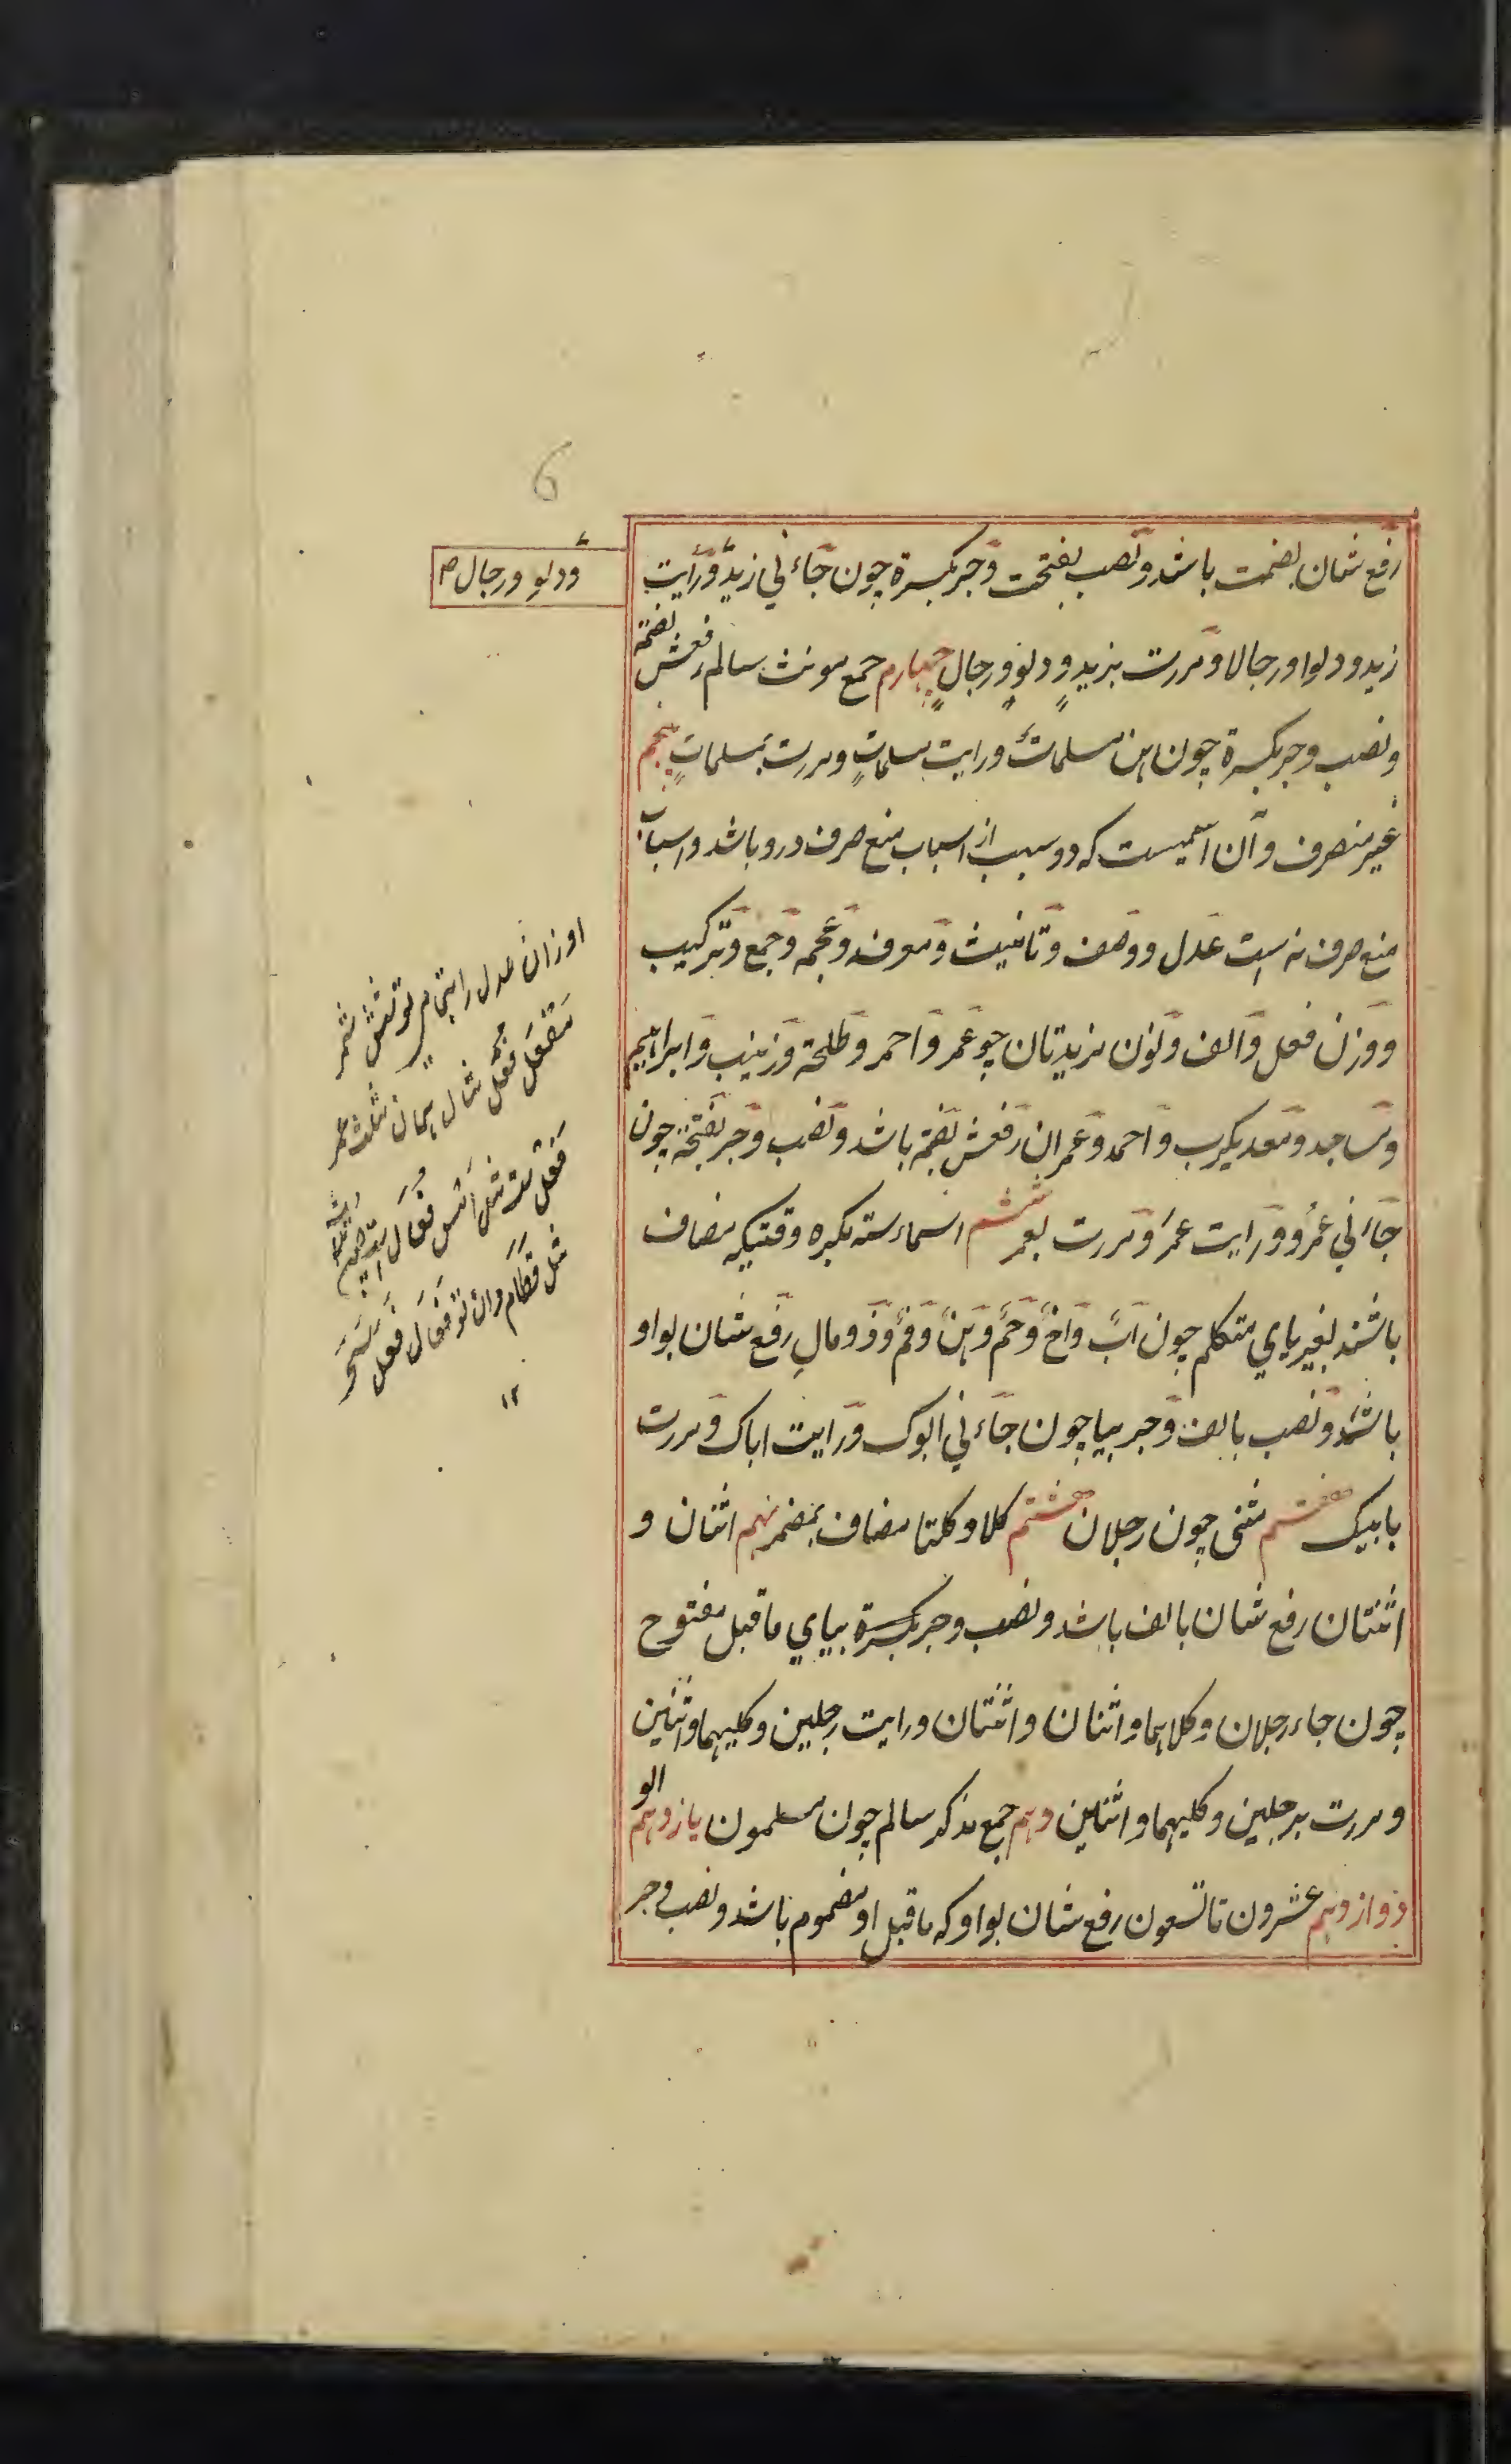 6
رفع شان بضمت باشد و نصب بفتحت و جر بکسرة چون جاءني زیدٌ و رایت
ودلو ورجال صح
زید و دلوا و رجالا و مررت بزیدٍ و دلوٍ و رجالٍ چهارم جمع مونث سالم رفعش بضمة
و نصب و جر بکسرة چون هن مسلماتٌ و رایت مسلماتٍ و مررت بمسلماتٍ پنجم
غیر منصرف و آن اسمیست که دو سبب از اسباب منع صرف درو باشد و اسباب
منع صرف نه است عدل و وصف و تانیث و معرفه و عجمه و جمع و ترکیب
و وزن فعل و الف و نون مزیدتان چو عمر و احمر و طلحة و زینب و ابراهیم
و مساجد و معدیکرب و احمد و عمران رفعش بضمة باشد و نصب و جر بفتحة چون
جاءني عمرُ و رایت عمرَ و مررت بعمر ششم اسماء سته مکبره وقتیکه مضاف
باشند بغیر یاي متکلم چون ابٌ و اخٌ و حمٌ و هنٌ و فمٌ و ذو مالٍ رفع شان بواو
باشد و نصب بالف و جر بیا چون جاءني ابوک و رایت اباک و مررت
بابیک هفتم مثنی چون رجلان هشتم کلا و کلتا مضاف بمضمر نهم اثنان و
اثنتان رفع شان بالف باشد و نصب و جر بکسرة بیاي ماقبل مفتوح
چون جاء رجلان و کلاهما و اثنان و اثنتان و رایت رجلین و کلیهما و اثنین
و مررت برجلین و کلیهما و اثنین دهم جمع مذکر سالم چون مسلمون یازدهم الو
دوازدهم عشرون تا تسعون رفع شان بواو که ماقبل او مضموم باشد و نصب و جر
اوزان عدل را بتمام تو شش شمر
مفعل فعل مثال همان مثلث عمر
فعل است مثل امس فعال است
مثل قطام وان تو فعال فعل سحر
۱۲